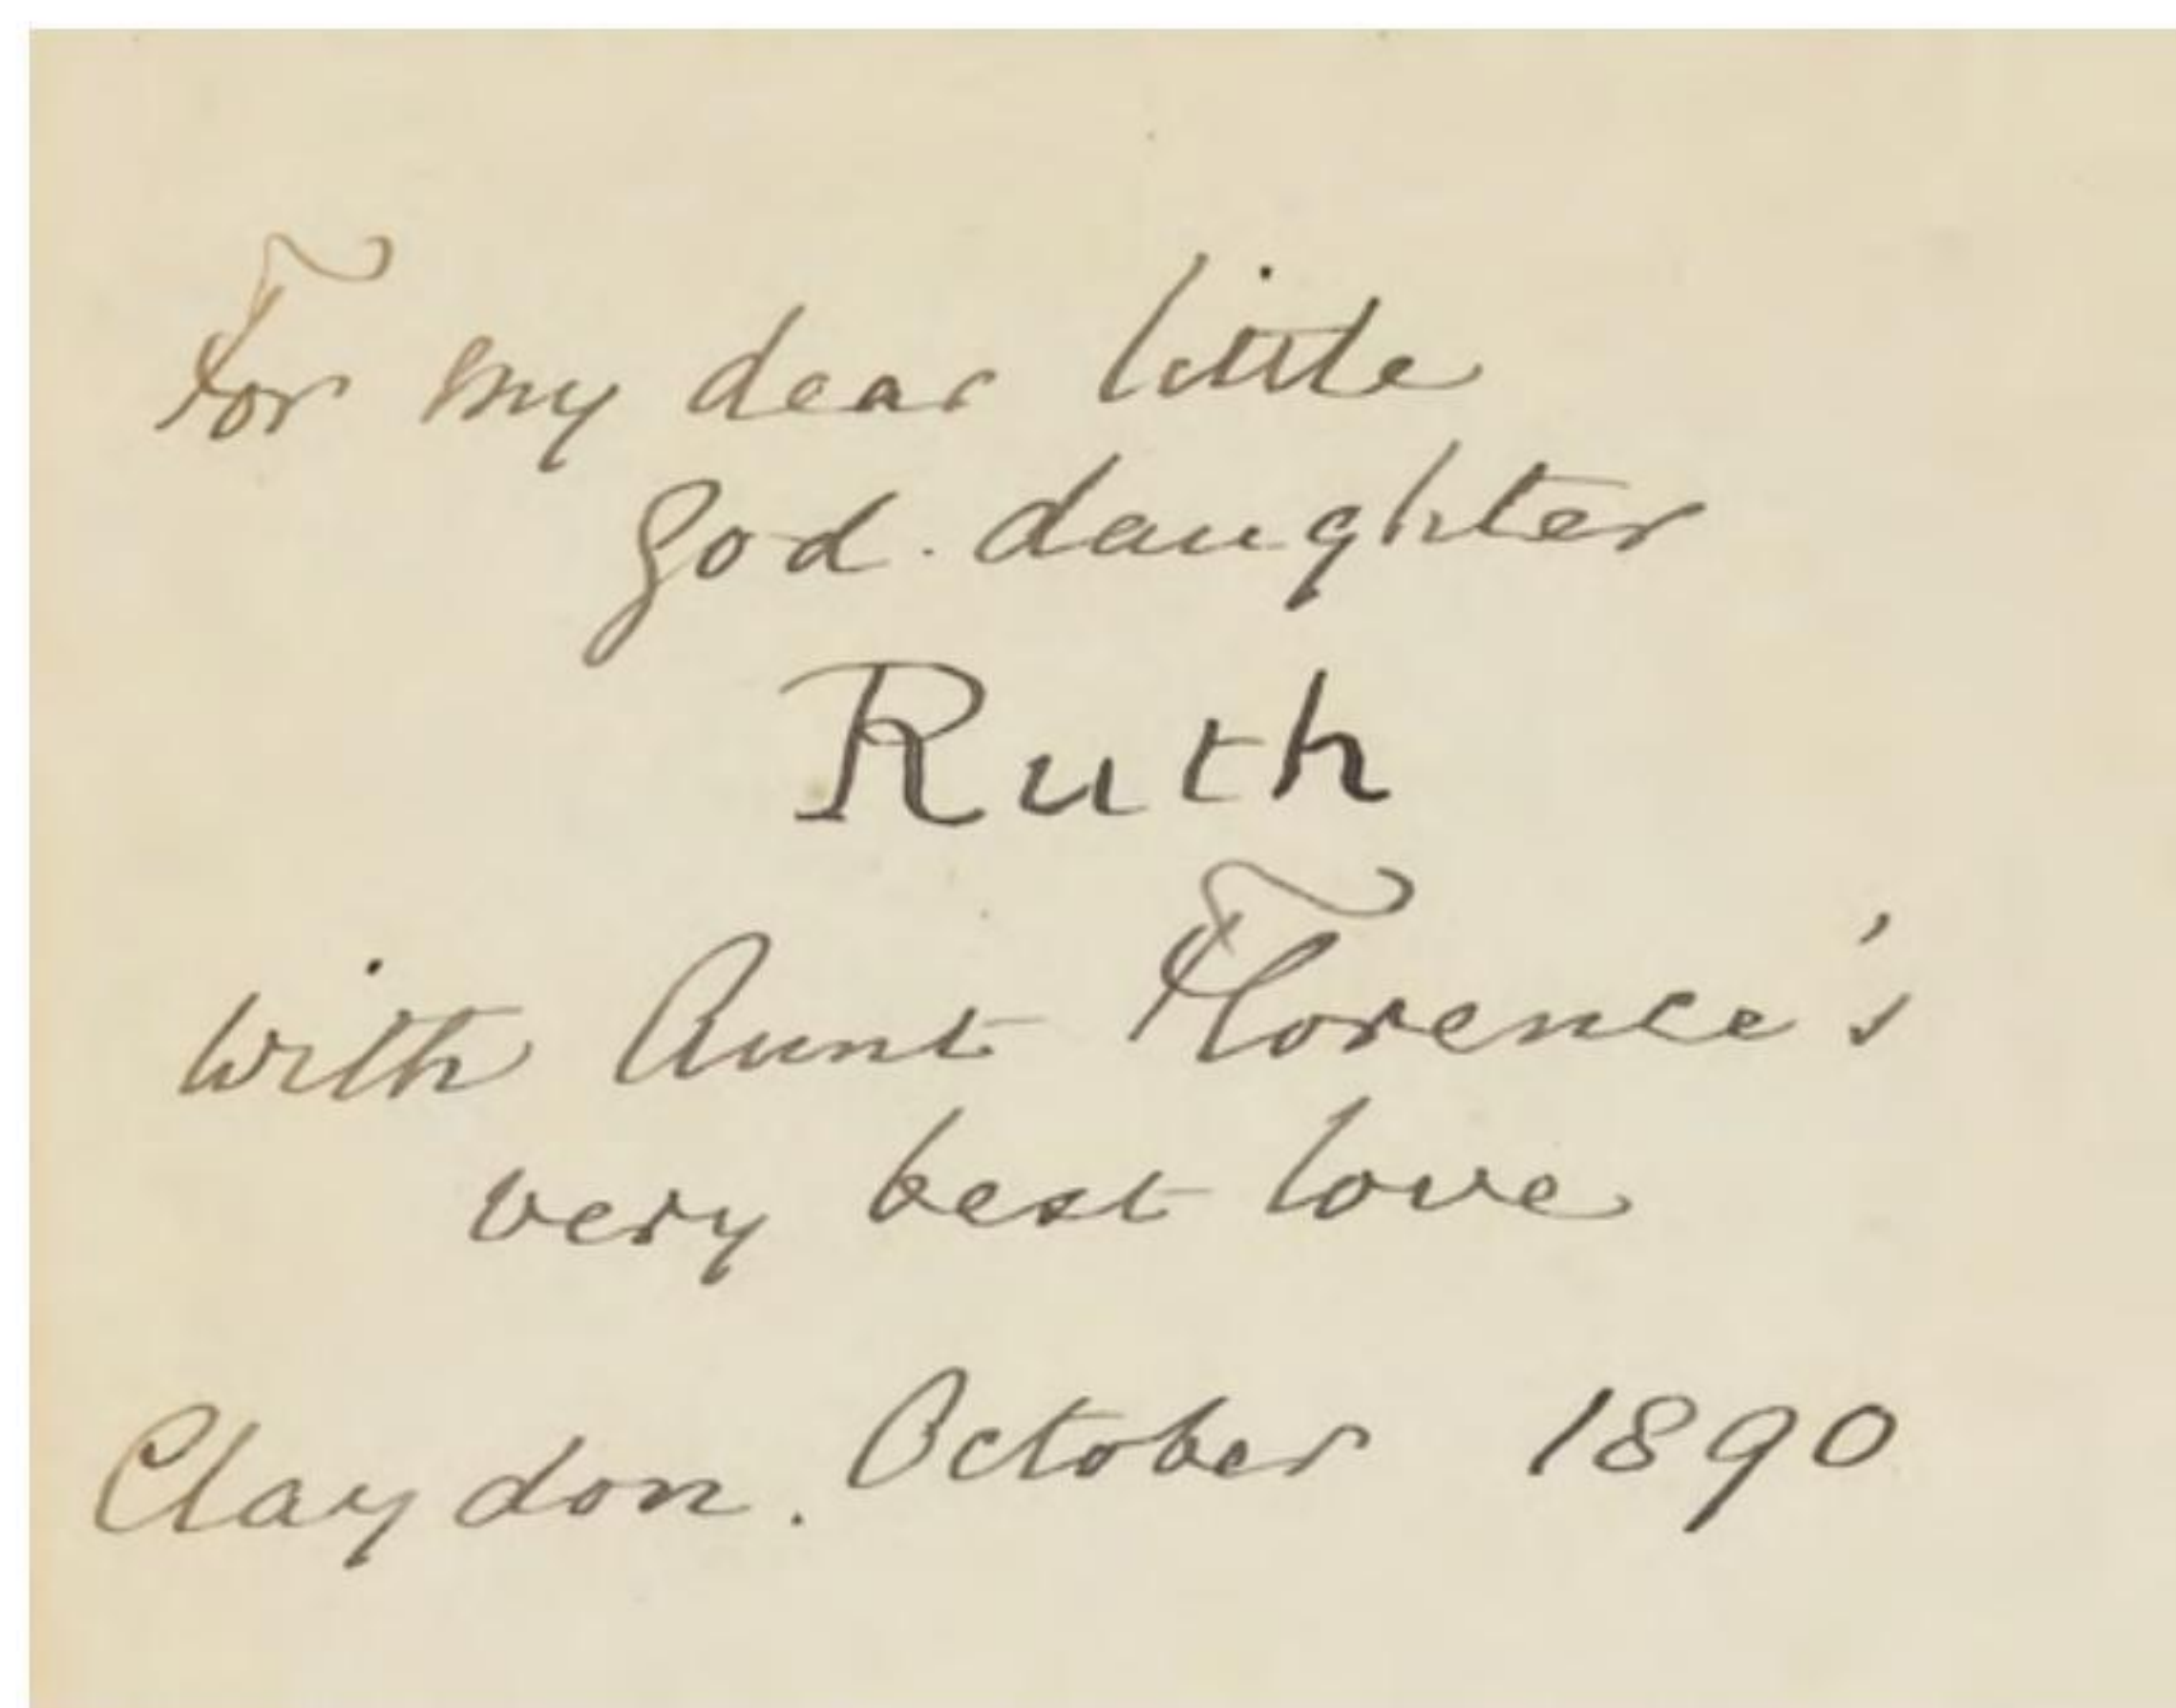 For my dear little
God. daughter
Ruth
With Aunt Florence's
very best love
Claydon. October 1890